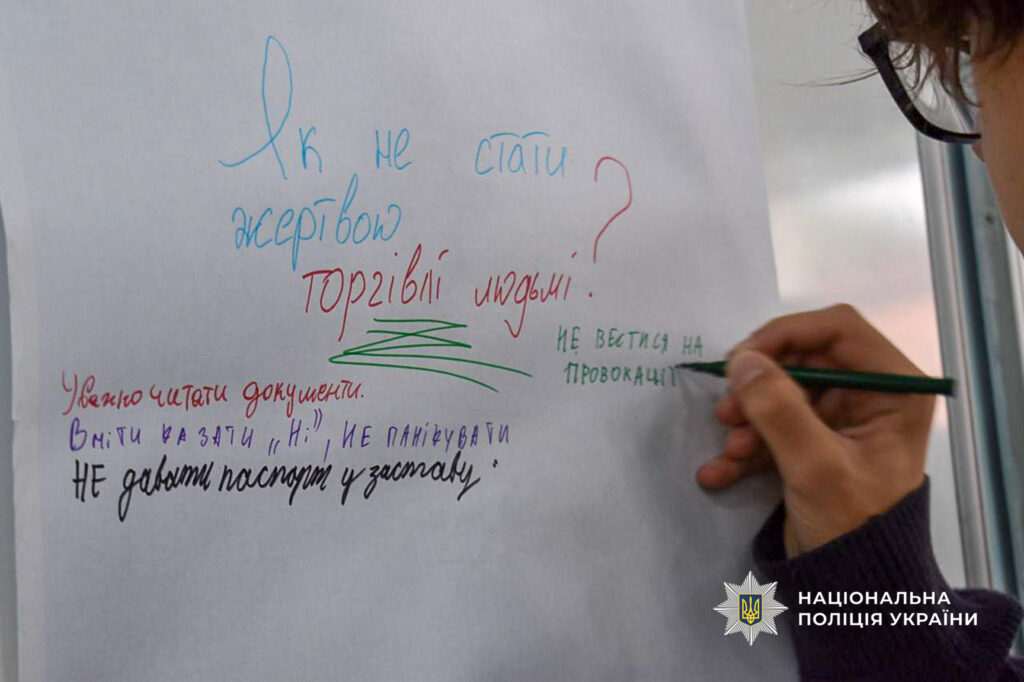 Як не стати
жертвою
торгівлі людьмі?
Уважно читати документи.
Вміти казати „Ні”, не панікувати
НЕ давати паспорт у заставу.
НЕ ВЕСТИСЯ НА
ПРОВОКАЦІЇ
НАЦІОНАЛЬНА
ПОЛІЦІЯ УКРАЇНИ